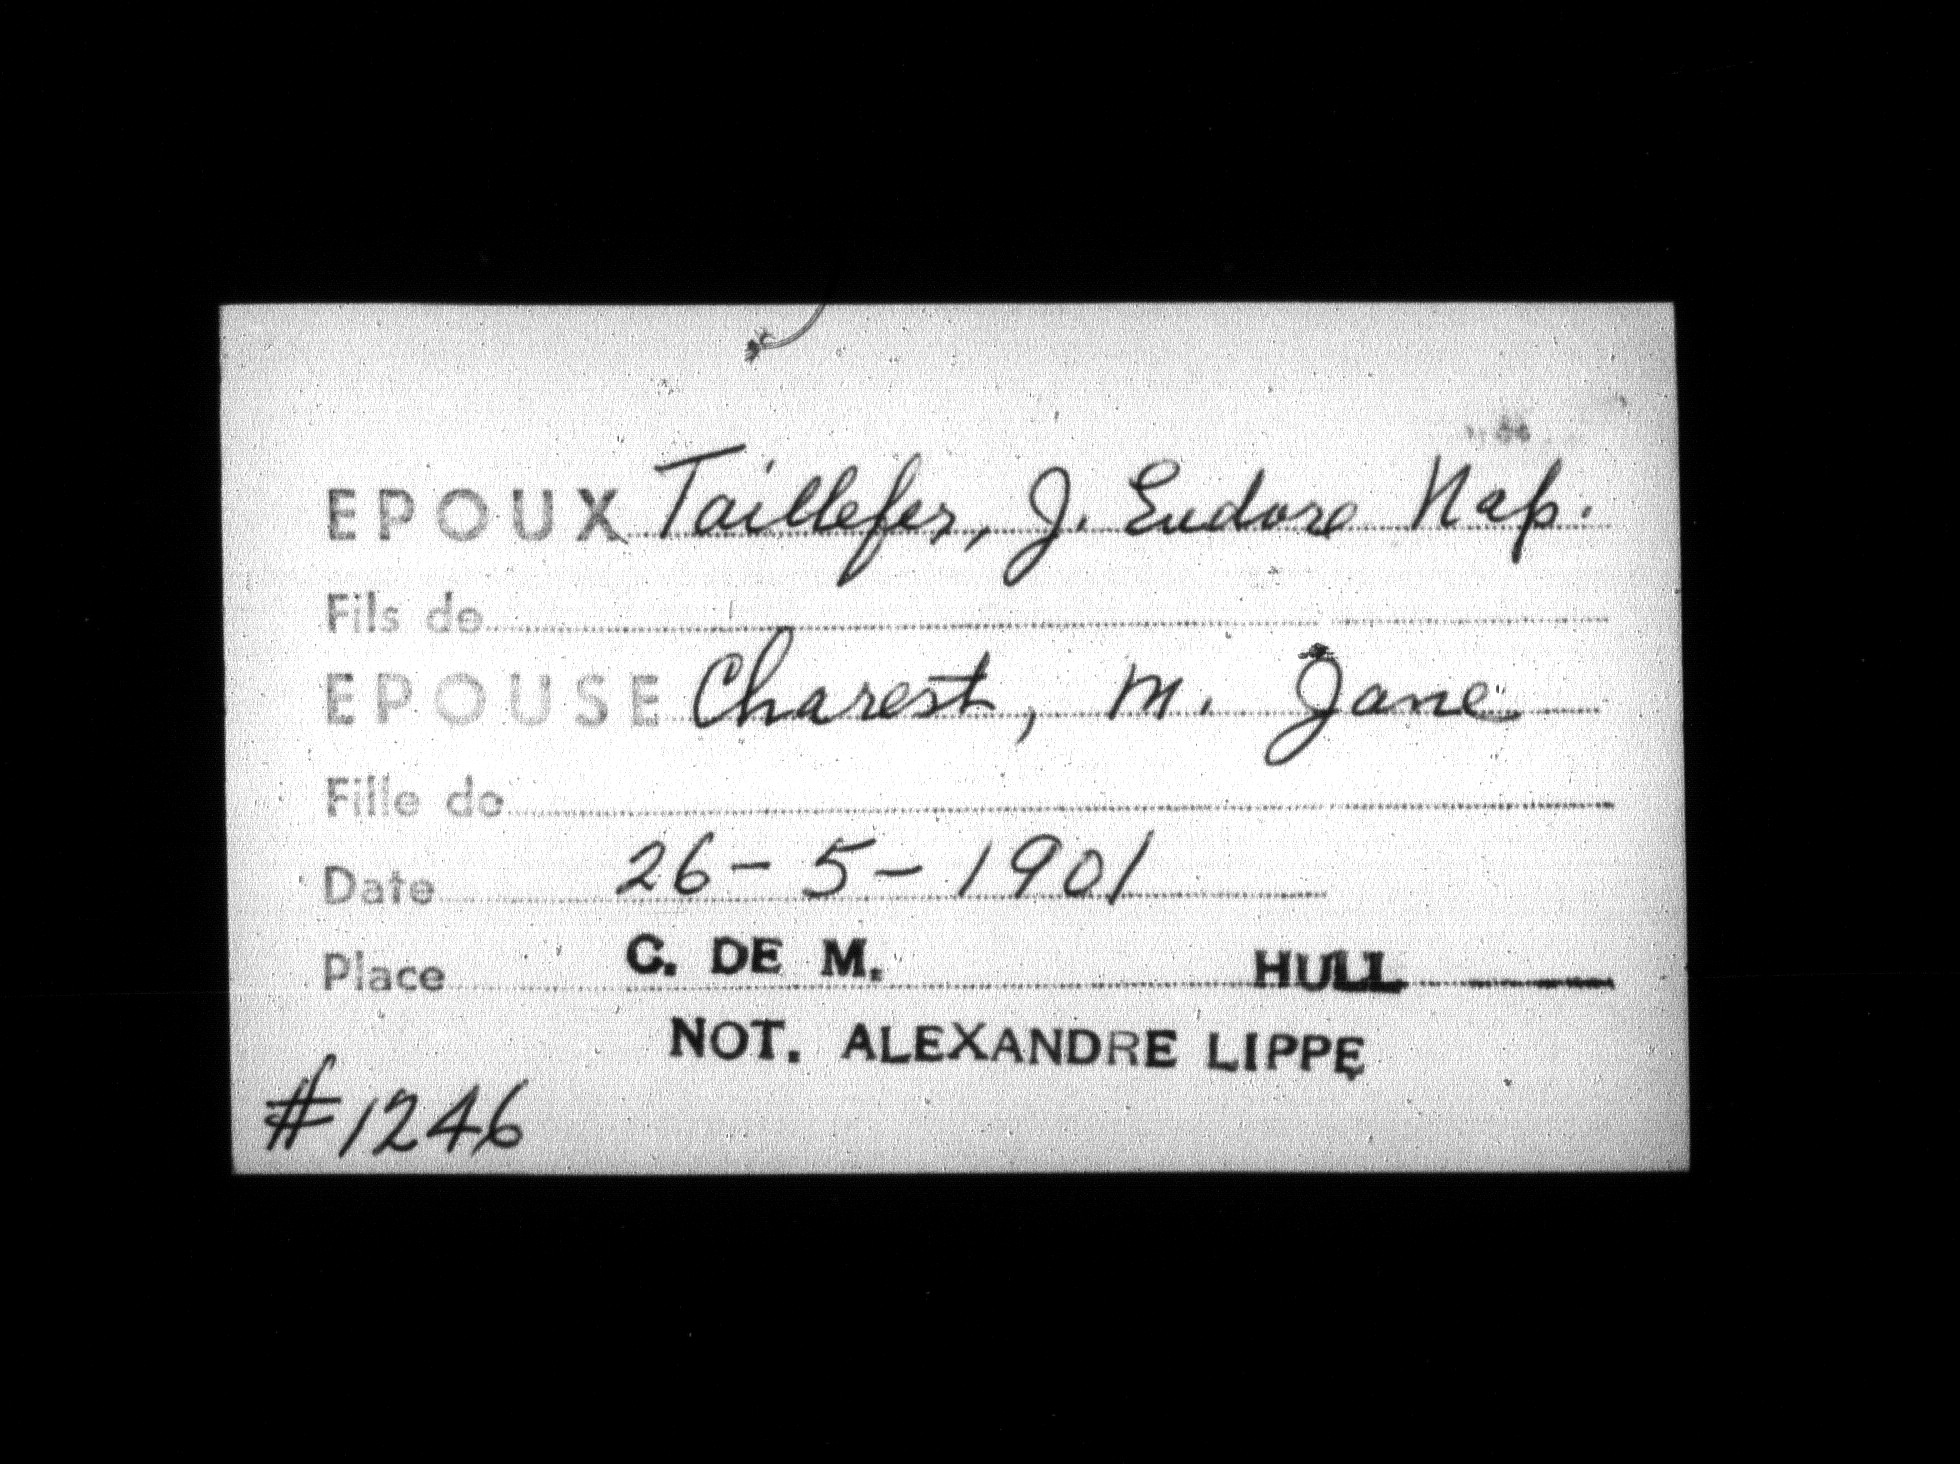 EPOUX Taillefer, J. Eudore Nap.
Fils de
EPOUSE Charest, M. Jane
Fille de
Date 26-5-1901
Place C. DE M. HULL
NOT. ALEXANDRE LIPPE
#1246